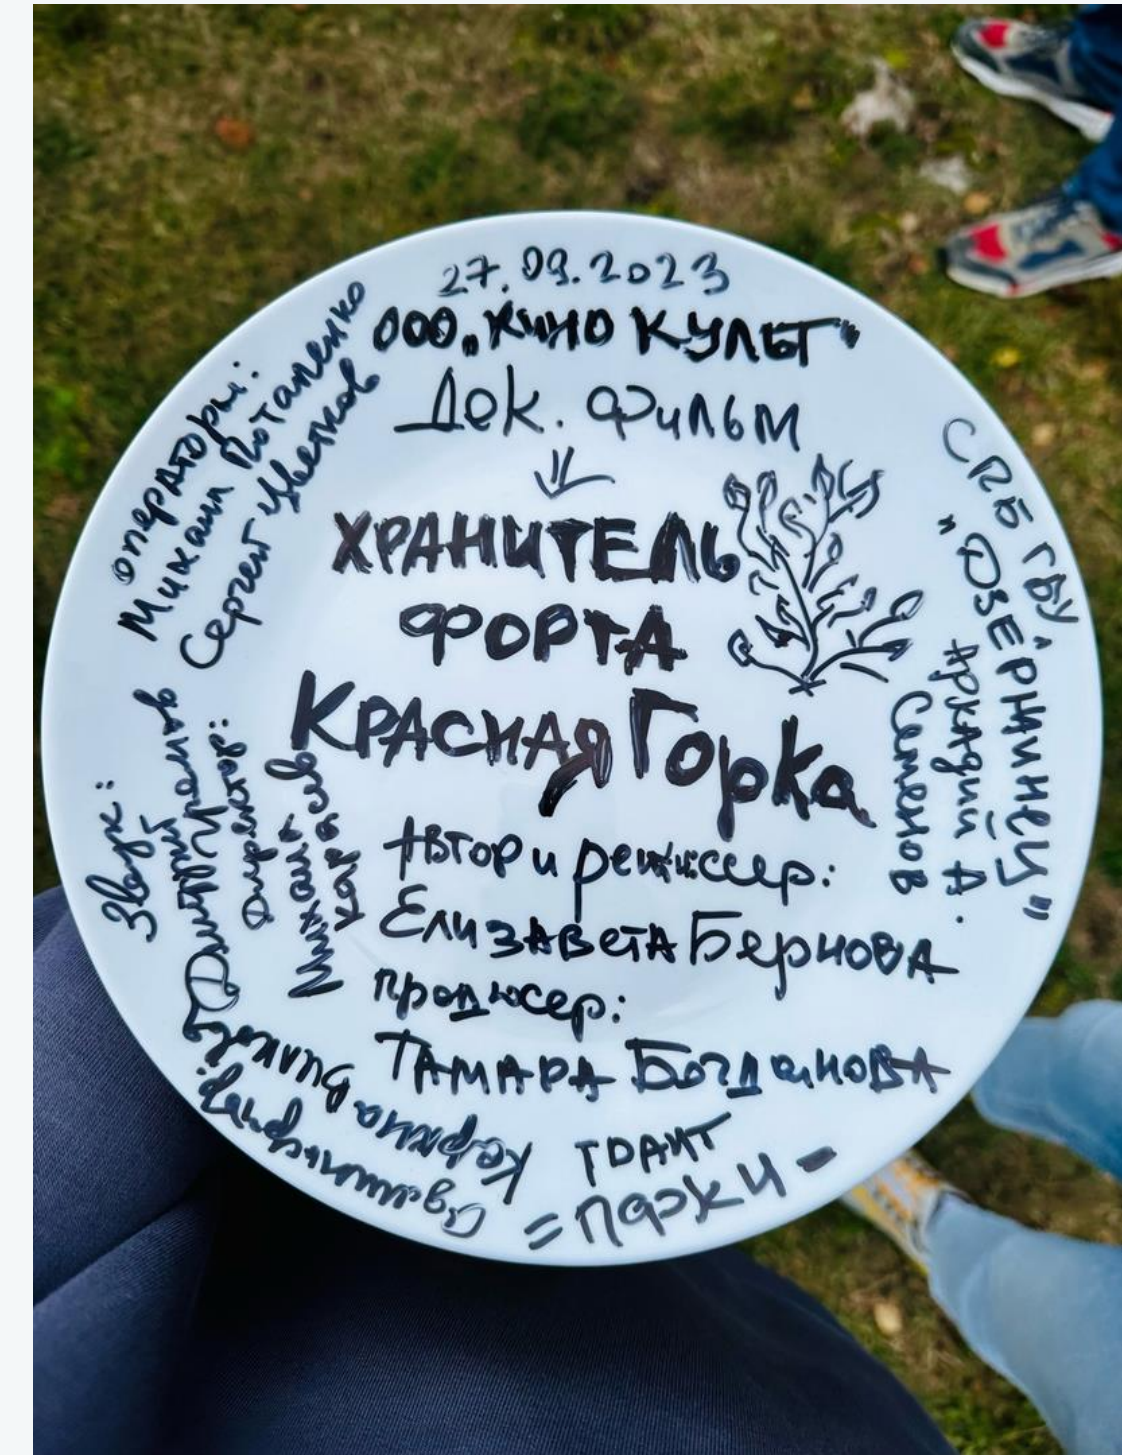 27.09.2023
ООО „КИНО КУЛЬТ"
Док. Фильм
ХРАНИТЕЛЬ
ФОРТА
КРАСНАЯ Горка
Автор и режиссер:
ЕЛИЗАВЕТА БЕРНОВА
продюсер:
ТАМАРА БОГДАНОВА
операторы:
Михаил Потапенко
Сергей Цветков
Звук:
Дмитрий
директор:
Михаил
Карасев
Карина
СПБ ГБУ
„ОЗЕРНИНЕЦ"
Аркадий А.
Семенов